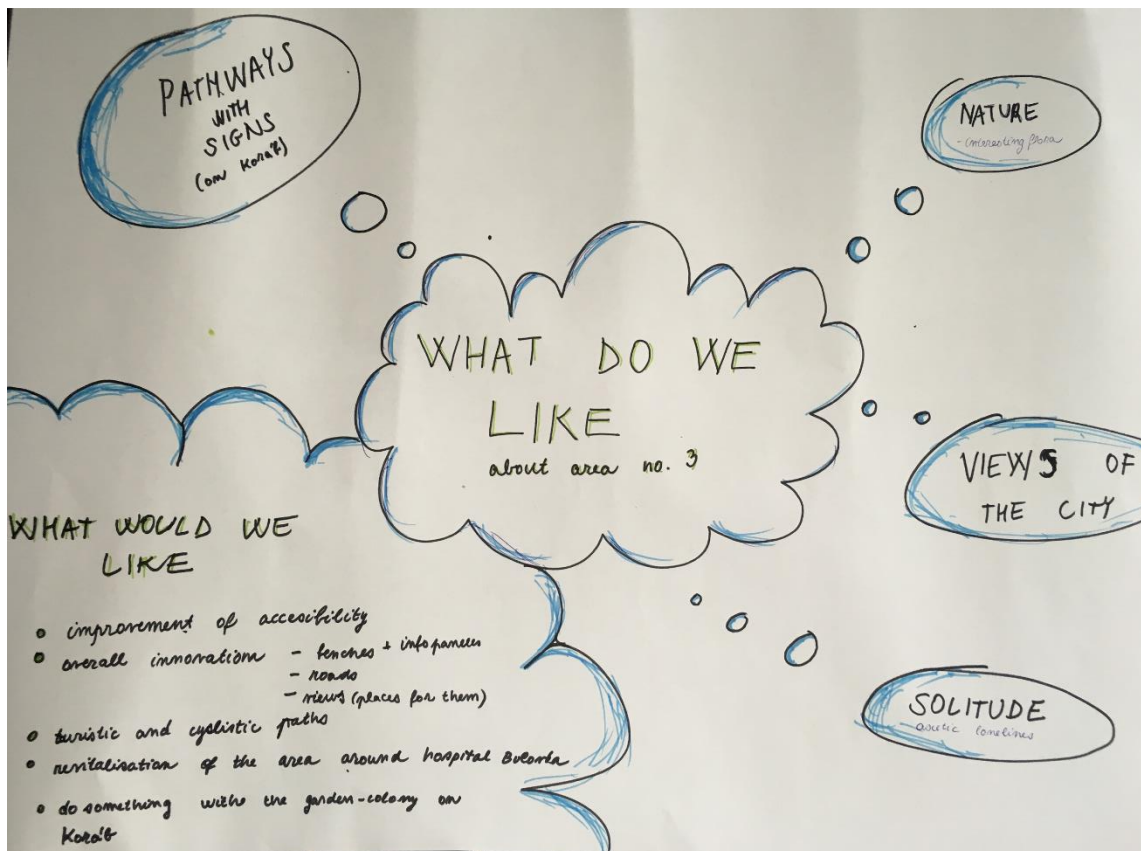 PATHWAYS
WITH
SIGNS
(on Koráb)
NATURE
- interesting flora
WHAT DO WE
LIKE
about area no. 3
VIEWS OF
THE CITY
SOLITUDE
lonelines
WHAT WOULD WE
LIKE
• improvement of accesibility
• overall innovation - benches + infopaneles
- roads
- views (places for them)
• turistic and cyclistic paths
• revitalisation of the area around hospital Bulovka
• do something with the garden-colony on
Koráb